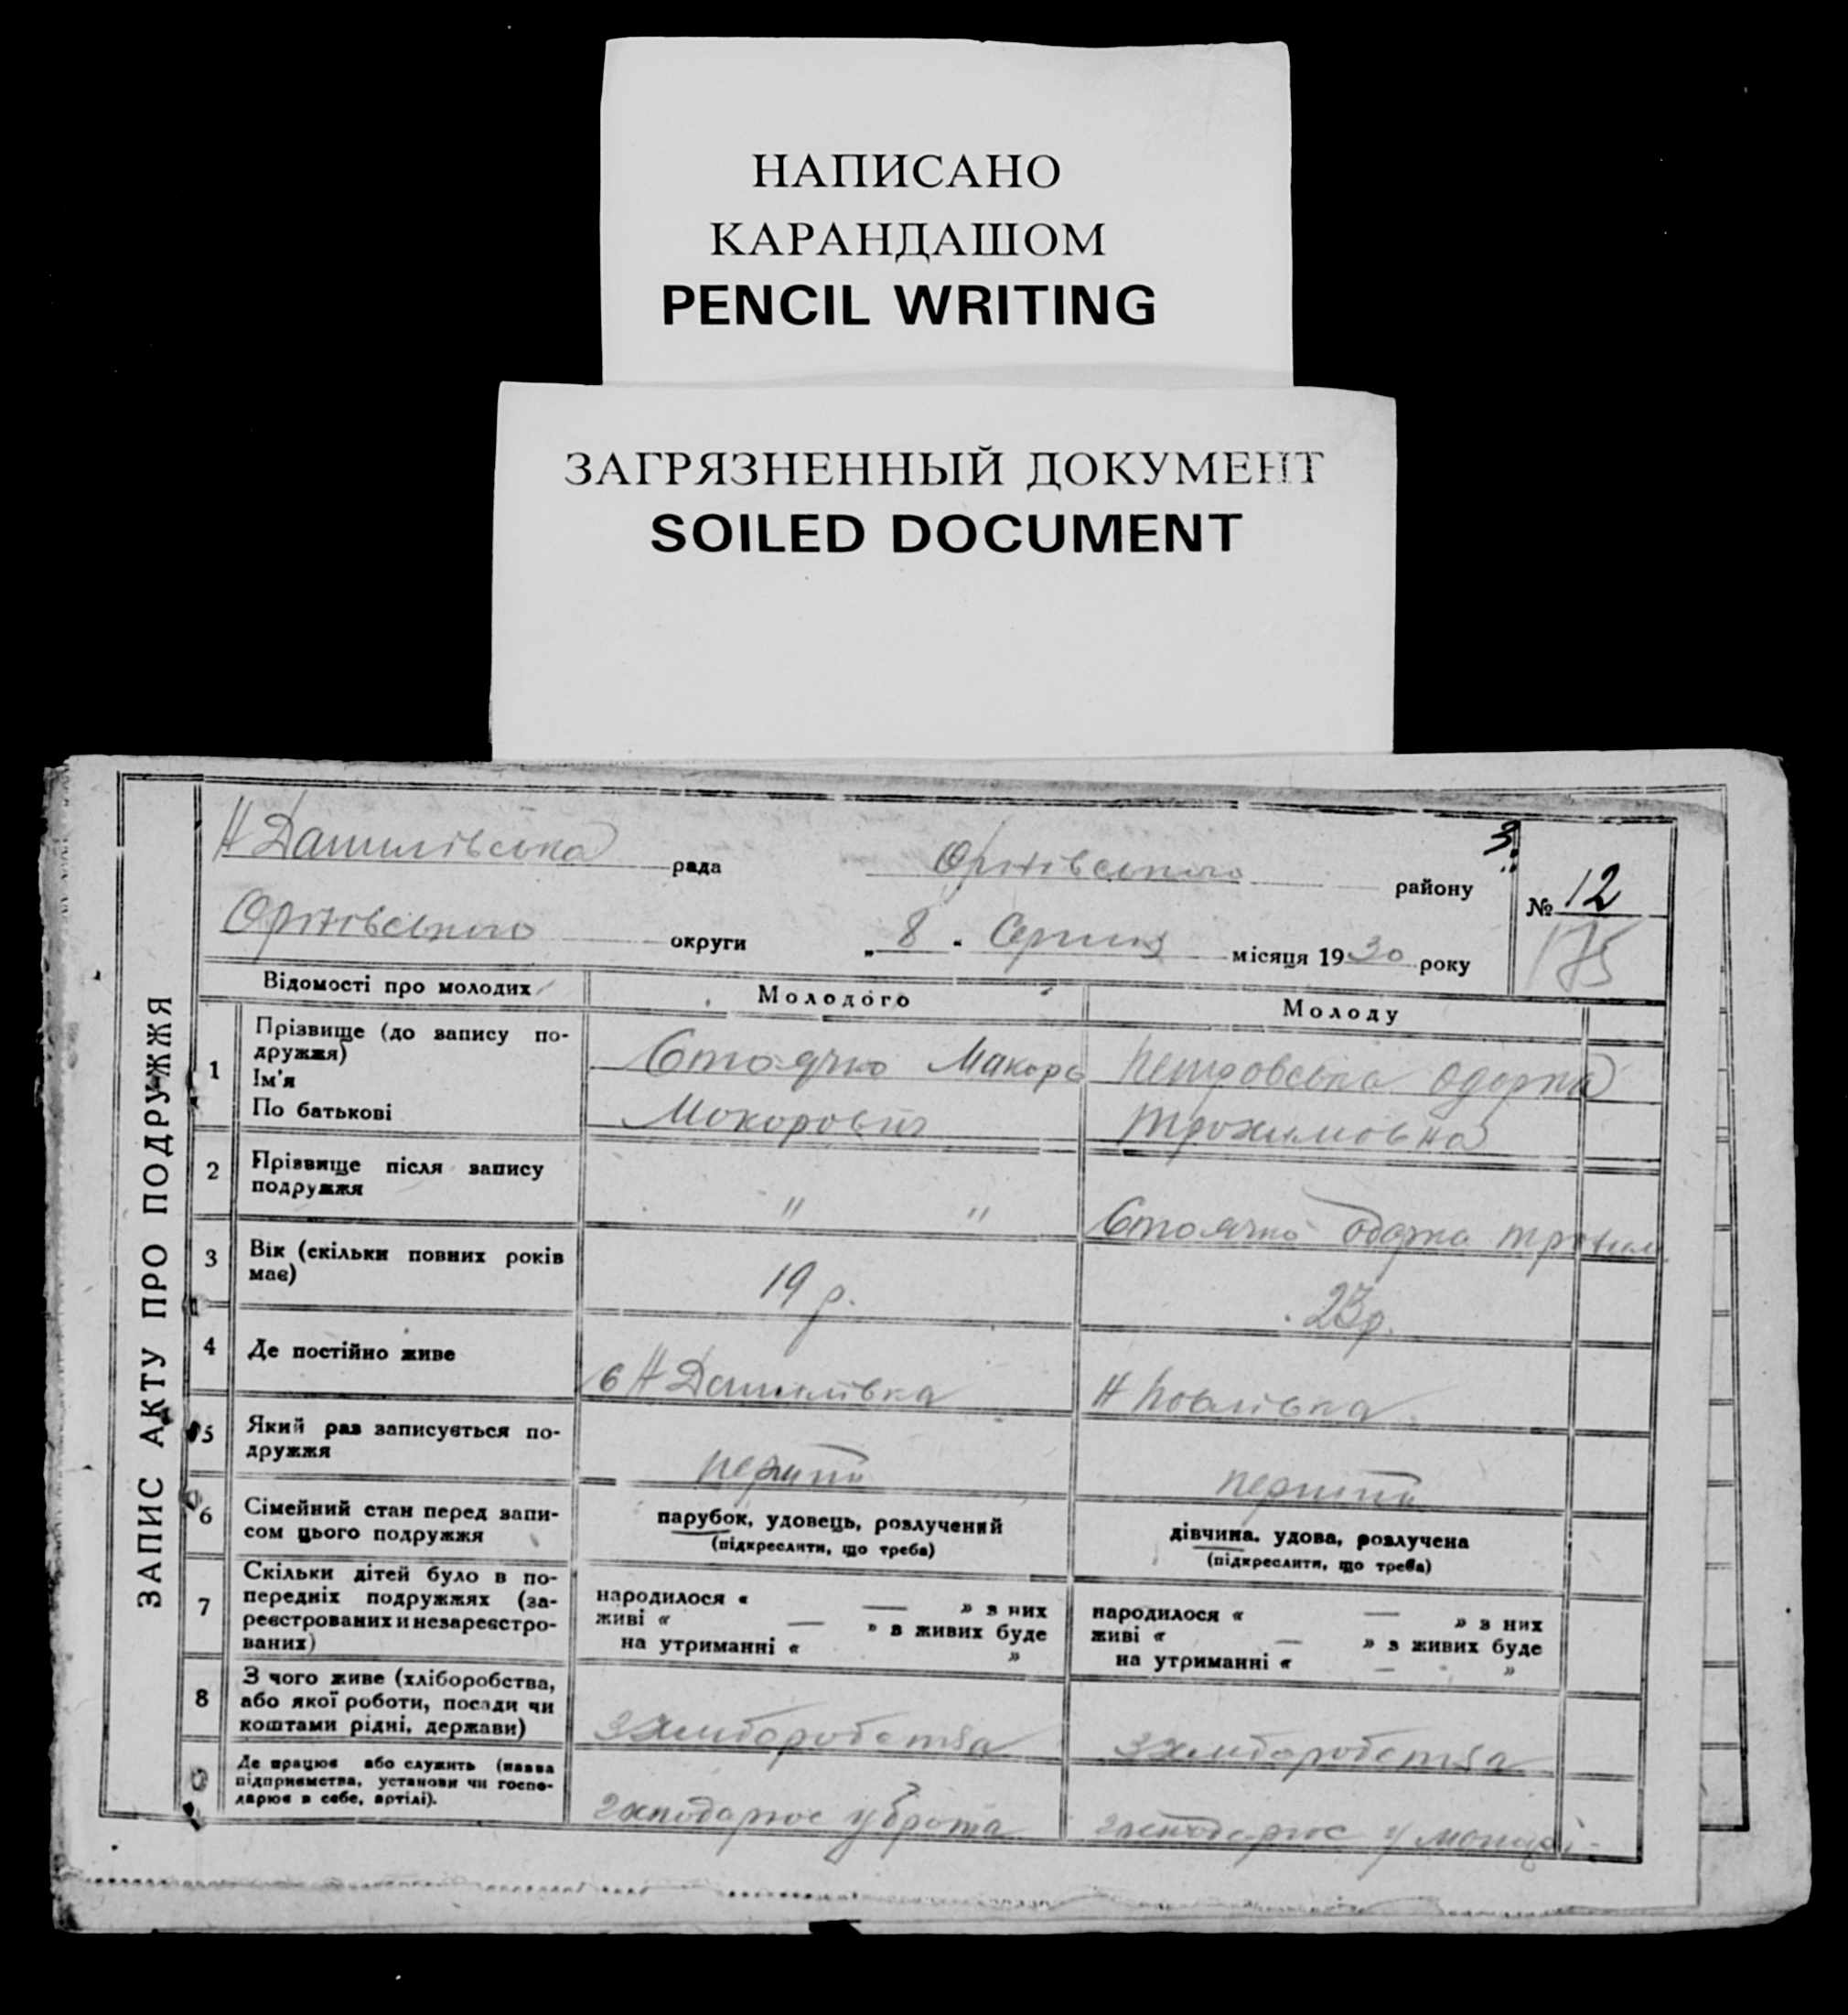 НАПИСАНО
КАРАНДАШОМ
PENCIL WRITING
ЗАГРЯЗНЕННЫЙ ДОКУМЕНТ
SOILED DOCUMENT
ЗАПИС АКТУ ПРО ПОДРУЖЖЯ
Н Данилівська рада району
3.
№ 12
округи „ 8 " Серпня місяця 1930 року
175
Відомості про молодих Молодого Молоду
1 Прізвище (до запису по-
дружжя)
Ім'я
По батькові
Стоячко Макарь
Мокорович
Петровська Одарка
Трохимовна
2 Прізвище після запису
подружжя
" "
Стоячко Одарка
3 Вік (скільки повних років
має)
19 р.
23 р.
4 Де постійно живе
Н Данилівка
Н Повлівка
5 Який раз записується по-
дружжя
перший
перший
6 Сімейний стан перед запи-
сом цього подружжя
парубок, удовець, розлучений
(підкреслити, що треба)
дівчина. удова, розлучена
(підкреслити, що треба)
7 Скільки дітей було в по-
передніх подружжях (за-
реєстрованих и незареєстро-
ваних)
народилося « — » з них
живі « — » з живих буде
на утриманні « »
народилося « — » з них
живі « — » з живих буде
на утриманні « — »
8 З чого живе (хліборобства,
або якої роботи, посади чи
коштами рідні, держави)
З хліборобства
З хліборобства
Де працює або служить (назва
підприємства, установи чи госпо-
дарює в себе, артілі).
господарює у брата
господарює у